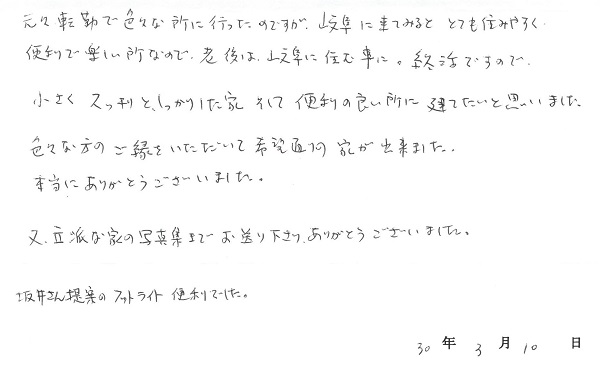 元々転勤で色々な所に行ったのですが、岐阜に来てみると とても住みやすく
便利で楽しい所なので、老後は、岐阜に住む事に。終活ですので、
小さく スッキリと、しっかりした家 そして 便利の良い所に 建てたいと思いました
色々な方の ご縁をいただいて 希望通りの 家が出来ました。
本当に ありがとうございいました。
又、立派な家の写真集まで お送り下さり、ありがとうございました。
坂井さん提案の フットライト 便利でした。
30 年 3 月 10 日